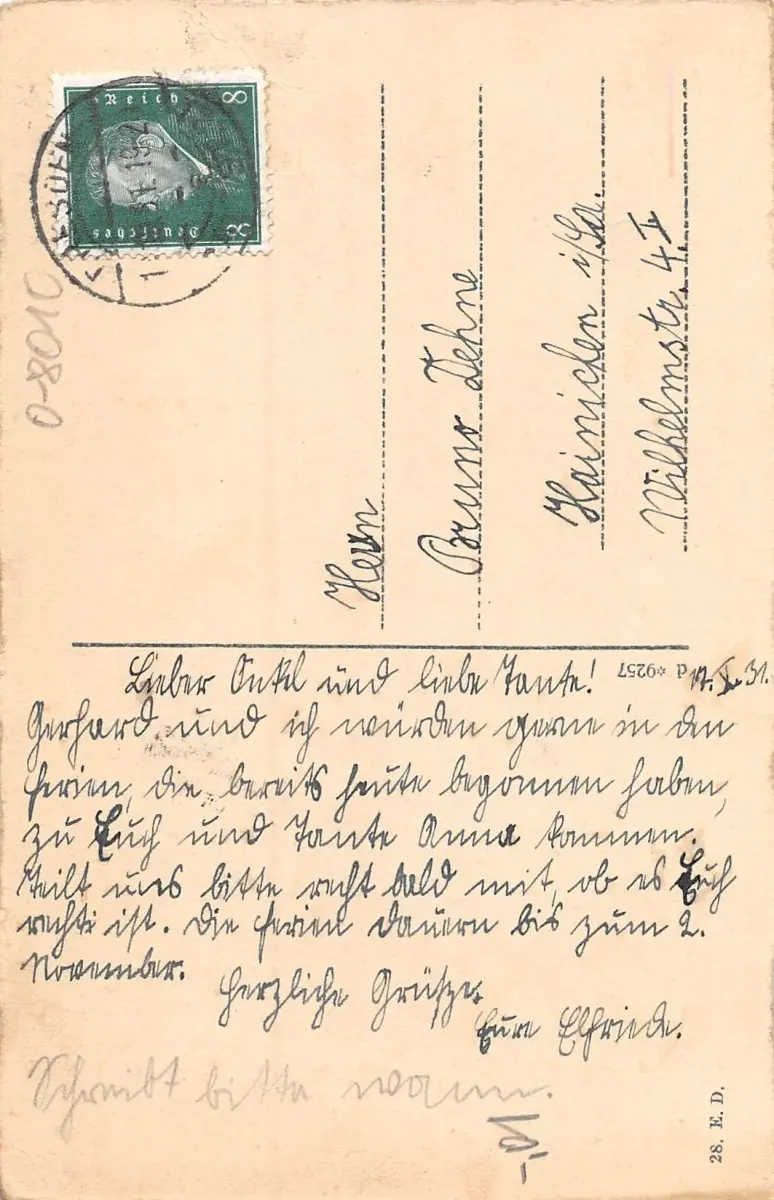 Deutsches
Reich
8
8
DRESDEN
0-8010
Herrn
Bruno Dehne
Hainichen i/Sa.
Wilhelmstr. 4. I
d *9257
Lieber Onkel und liebe Tante!
Gerhard und ich würden gerne in den
Ferien, die bereits heute begonnen haben,
zu Euch und Tante Anna kommen.
Teilt uns bitte recht bald mit, ob es Euch
recht ist. Die Ferien dauern bis zum 2.
November.
Herzliche Grüße
Eure Elfriede.
Schreibt bitte wann.
28. E. D.